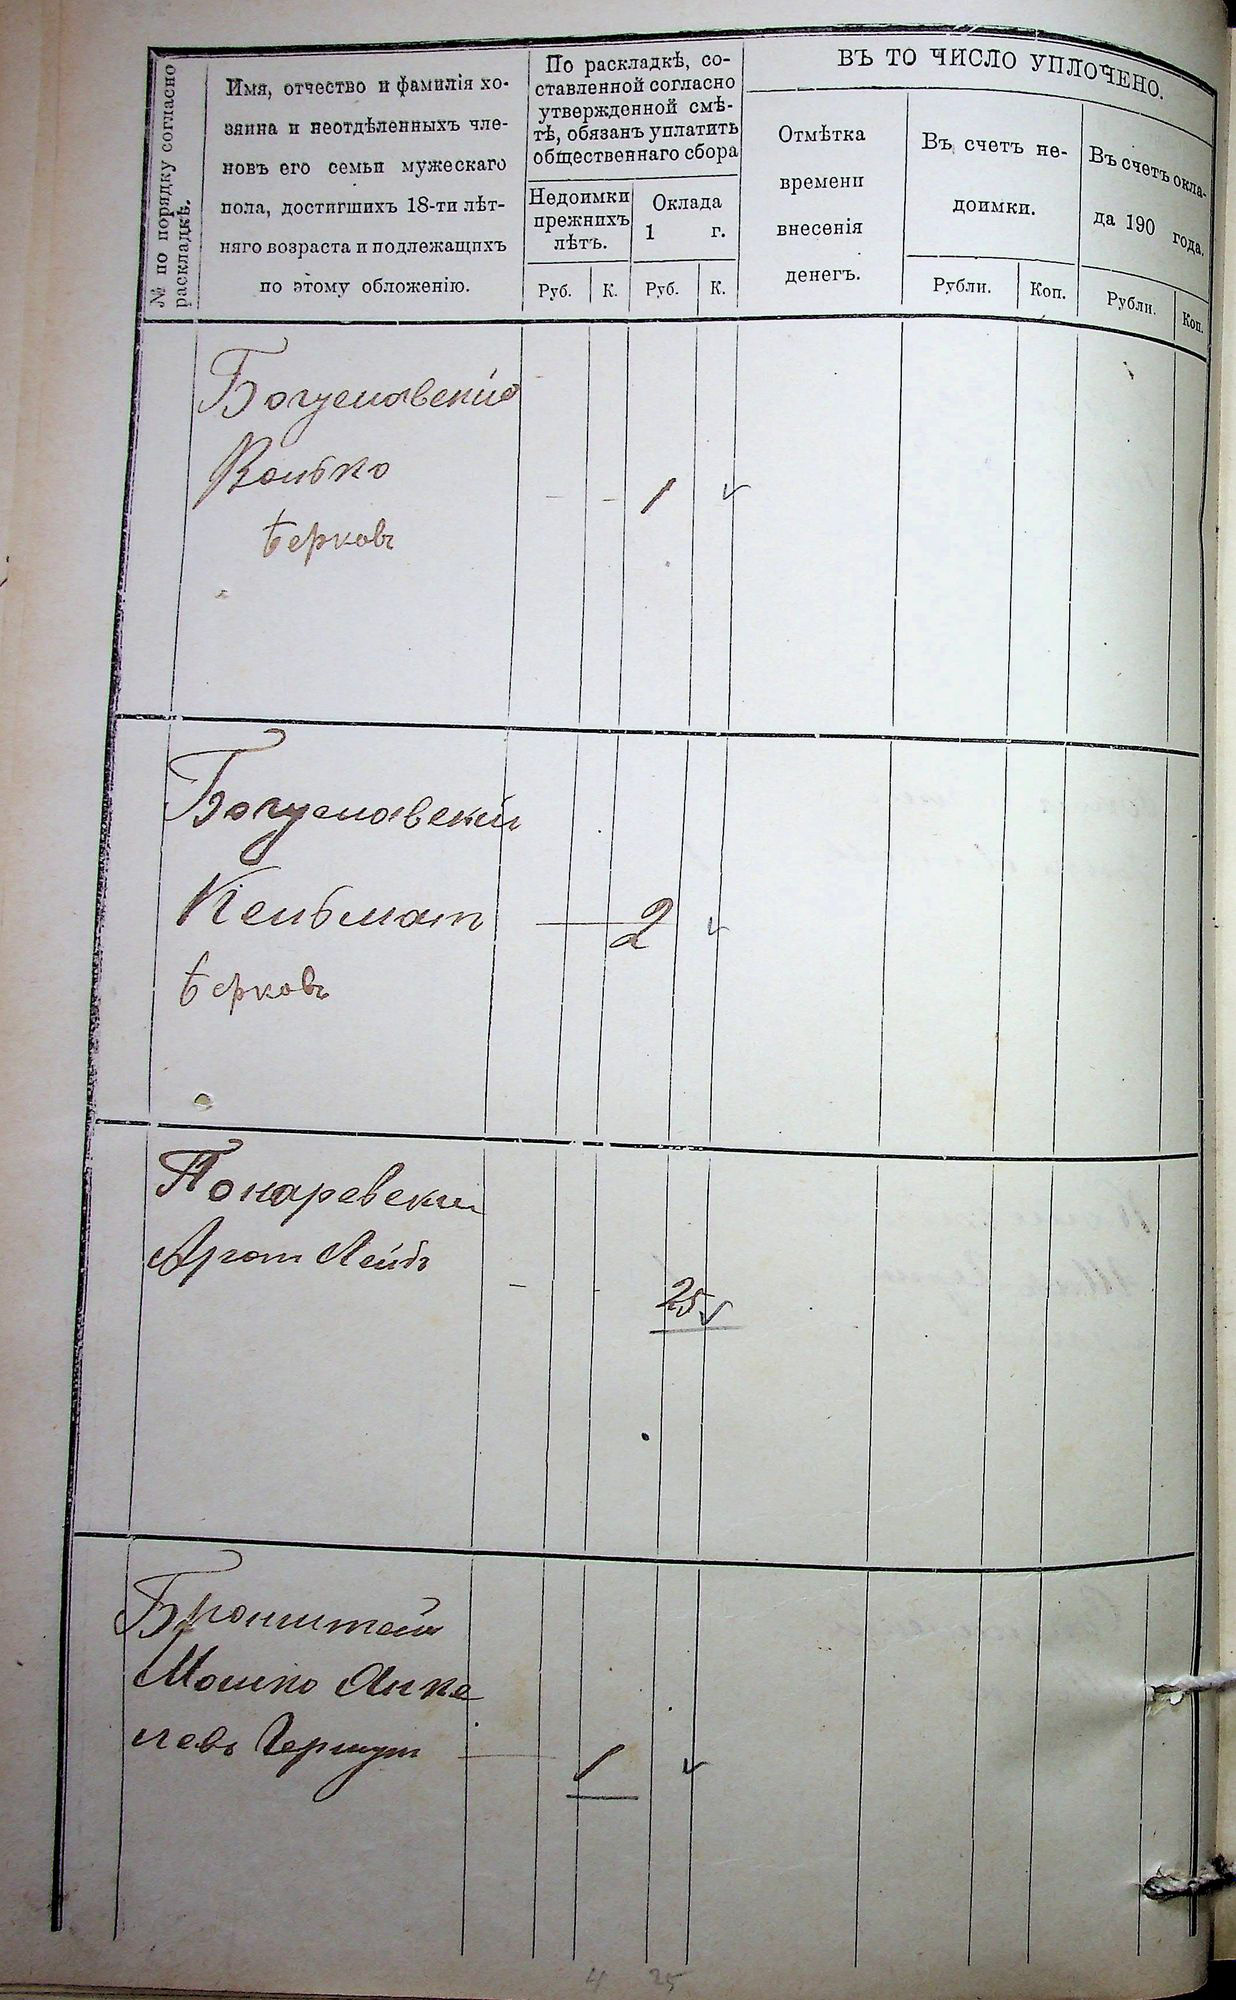 № по порядку согласно
раскладкѣ.
Имя, отчество и фамилія хо-
зяина и неотдѣленныхъ чле-
новъ его семьи мужескаго
пола, достигшихъ 18-ти лѣт-
няго возраста и подлежащихъ
по этому обложенію.
По раскладкѣ, со-
ставленной согласно
утвержденной смѣ-
тѣ, обязанъ уплатить
общественнаго сбора
Недоимки
прежнихъ
лѣтъ.
Оклада
1 г.
Руб. К. Руб. К.
ВЪ ТО ЧИСЛО УПЛОЧЕНО.
Отмѣтка
времени
внесенія
денегъ.
Въ счетъ не-
доимки.
Рубли. Коп.
Въ счетъ окла-
да 190 года.
Рубли. Коп.
Богуславскій
Волько
Берковъ
- - 1 ✓
Богуславскій
Кельман
Берковъ
— 2 ✓
Понаревский
Арон Лейб
- 25 ✓
Бронштейн
Мошко Янке
левъ Гершун
— 1 ✓
4 25